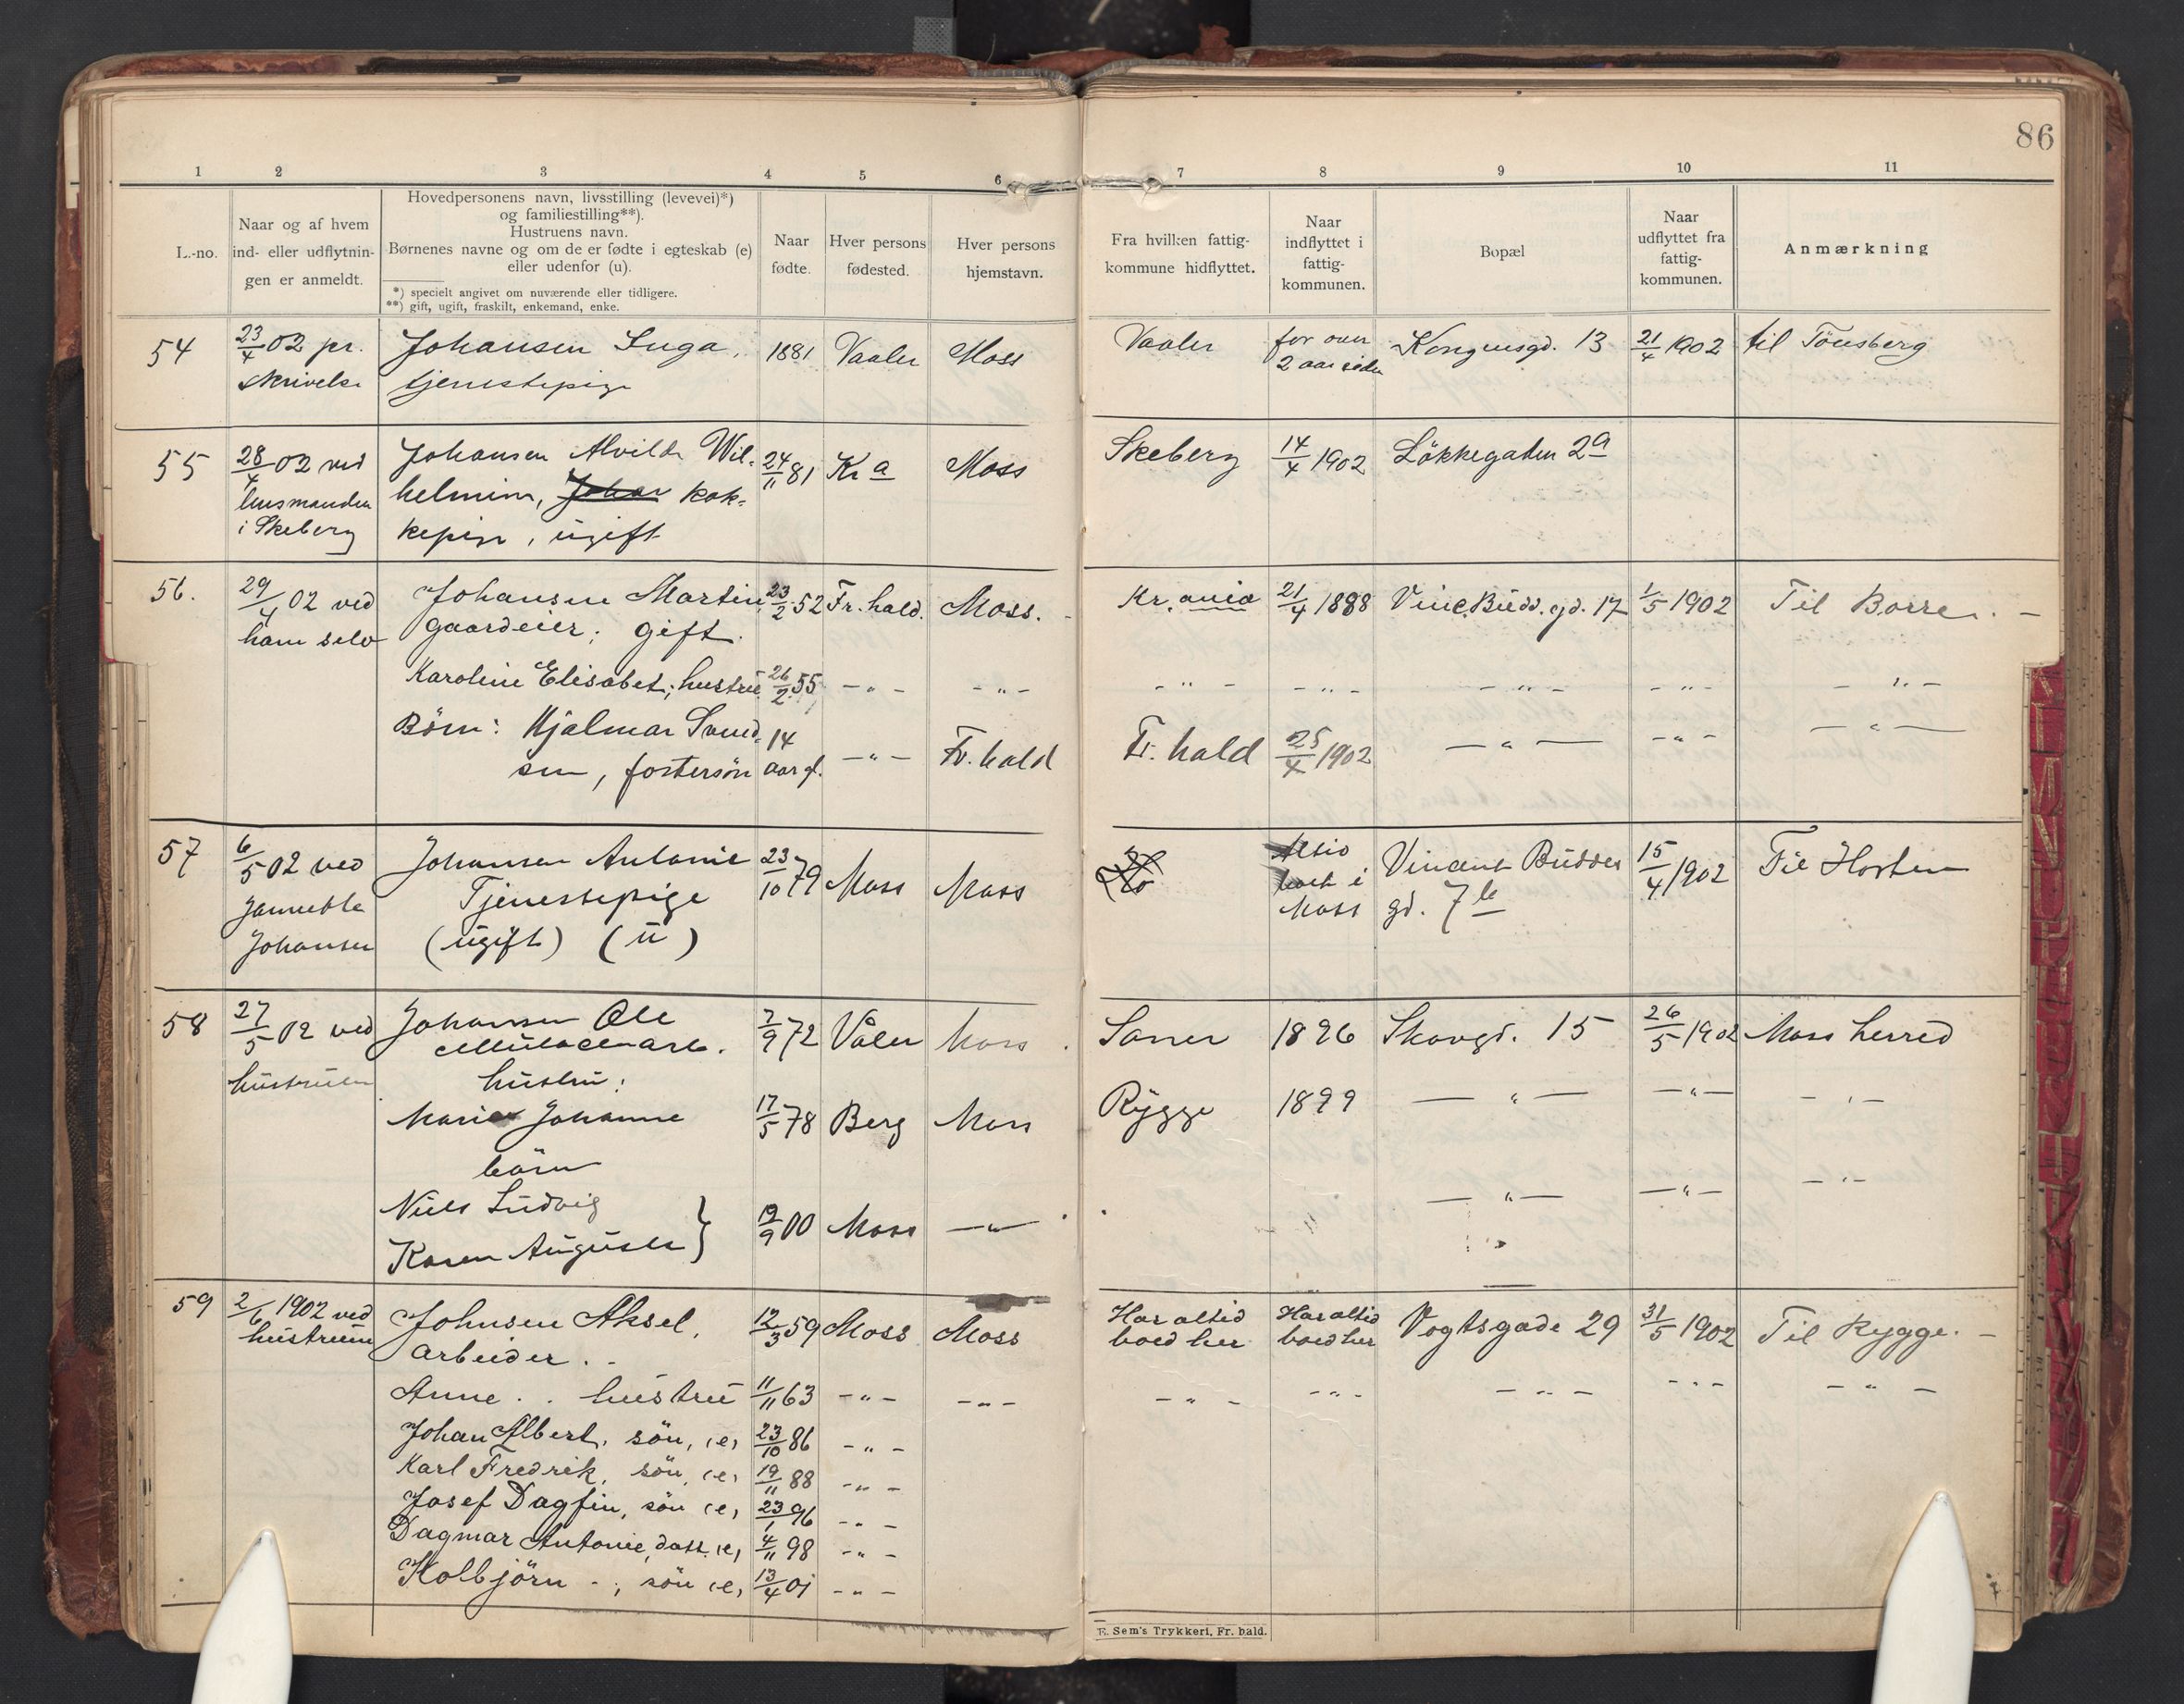 86
1 2 3 4 5 6 7 8 9 10 11
L.-no.
Naar og af hvem
ind- eller udflytnin-
gen er anmeldt.
Hovedpersonens navn, livsstilling (levevei)*)
og familiestilling**).
Hustruens navn.
Børnenes navne og om de er fødte i egteskab (e)
eller udenfor (u).
*) specielt angivet om nuværende eller tidligere.
**) gift, ugift, fraskilt, enkemand, enke.
Naar
fødte.
Hver persons
fødested.
Hver persons
hjemstavn.
Fra hvilken fattig-
kommune hidflyttet.
Naar
indflyttet i
fattig-
kommunen.
Bopæl
Naar
udflyttet fra
fattig-
kommunen.
Anmærkning
54 23/4 02 pr. Johansen Inga, 1881 Vaaler Moss Vaaler for over Kongensgd. 13 21/4 1902 til Tönsberg
skrivelse tjenestepige 2 aar siden
55 28/4 02 ved Johansen Alvilde Wil- 24/11 81 Kra Moss Skeberg 14/4 1902 Lökkegaten 2a
lensmanden helmine, Johan kok-
i Skeberg kepige, ugift
56. 29/4 02 ved Johansen Martin 23/2 52 Fr.hald. Moss. Kr.ania 21/4 1888 Vinc.Budd.gd. 17 1/5 1902 Til Borre. —
ham selv gaardeier; gift.
Karoline Elisabet; hustru 26/2 55 -"- -"- -"- -"- -"- -"- -"-
Börn: Hjalmar Svend- 14
sen, fostersön aar gl. -"- Fr.hald Fr.hald 25/4 1902 -"- -"- -"-
57 6/5 02 ved Johansen Antonie 23/10 79 Moss Moss Altid Vincent Buddes 15/4 1902 Til Horten
Jannette Tjenestepige boet i gd. 7b
Johansen (ugift) (u) Moss
58 27/5 02 ved Johansen Ole 7/9 72 Våler Moss Saner 1896 Skovgd. 15 26/5 1902 Moss herred
hustruen hustru:
Marie Johanne 17/5 78 Berg Moss Rygge 1899 -"- -"- -"-
börn
Niels Ludvig -"- -"- -"-
Karen Augusta } 19/9 00 Moss -"-
59 2/6 1902 ved Johnsen Aksel, 12/3 59 Moss Moss Har altid Har altid Vogtsgade 29 31/5 1902 Til Rygge. —
hustruen arbeider. boed her boed her
Anne . . hustru 11/11 63 -"- -"- -"- -"- -"- -"- -"-
Johan Albert, sön, (e) 23/10 86 -"-
Karl Fredrik, sön, (e) 19/11 88 -"-
Josef Dagfin, sön (e) 23/1 96 -"-
Dagmar Antonie, datt. (e) 4/11 98 -"-
Kolbjörn -, sön (e) 13/4 01 -"-
E. Sem's Trykkeri, Fr. hald.